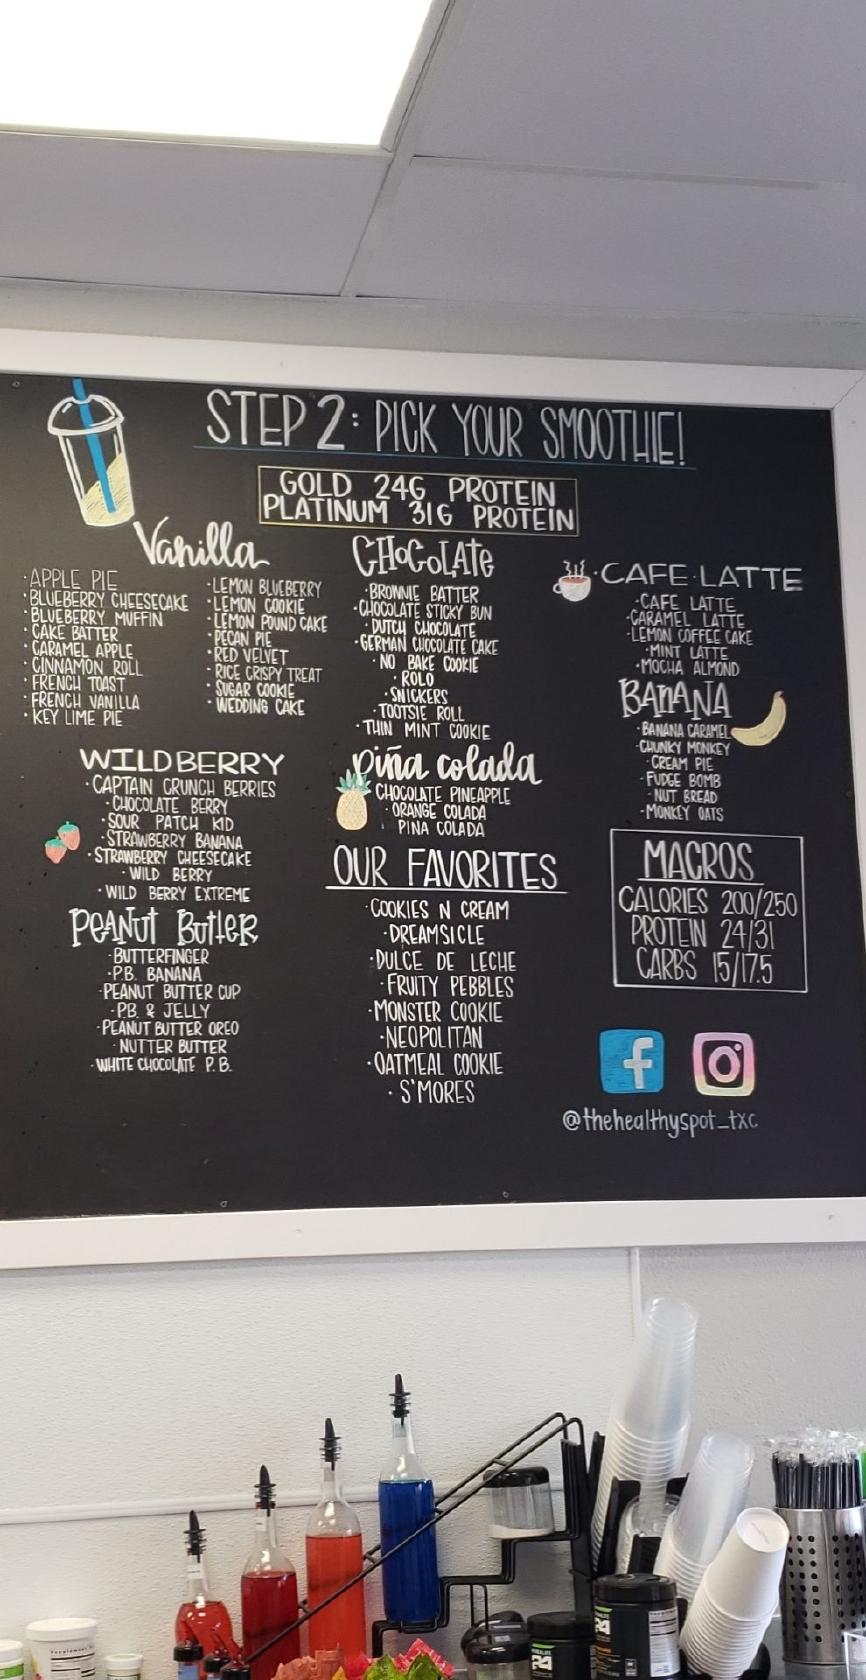 STEP 2: PICK YOUR SMOOTHIE!
GOLD 24G PROTEIN
PLATINUM 31G PROTEIN
Vanilla
·APPLE PIE
·BLUEBERRY CHEESECAKE
·BLUEBERRY MUFFIN
·CAKE BATTER
·CARAMEL APPLE
·CINNAMON ROLL
·FRENCH TOAST
·FRENCH VANILLA
·KEY LIME PIE
·LEMON BLUEBERRY
·LEMON COOKIE
·LEMON POUND CAKE
·PECAN PIE
·RED VELVET
·RICE CRISPY TREAT
·SUGAR COOKIE
·WEDDING CAKE
CHOCOLATE
·BROWNIE BATTER
·CHOCOLATE STICKY BUN
·DUTCH CHOCOLATE
·GERMAN CHOCOLATE CAKE
·NO BAKE COOKIE
·ROLO
·SNICKERS
·TOOTSIE ROLL
·THIN MINT COOKIE
·CAFE·LATTE
·CAFE LATTE
·CARAMEL LATTE
·LEMON COFFEE CAKE
·MINT LATTE
·MOCHA ALMOND
BANANA
·BANANA CARAMEL
·CHUNKY MONKEY
·CREAM PIE
·FUDGE BOMB
·NUT BREAD
·MONKEY OATS
WILDBERRY
·CAPTAIN CRUNCH BERRIES
·CHOCOLATE BERRY
·SOUR PATCH KID
·STRAWBERRY BANANA
·STRAWBERRY CHEESECAKE
·WILD BERRY
·WILD BERRY EXTREME
piña colada
·CHOCOLATE PINEAPPLE
·ORANGE COLADA
PINA COLADA
PEANUT BUTTER
·BUTTERFINGER
·P.B. BANANA
·PEANUT BUTTER CUP
·P.B. & JELLY
·PEANUT BUTTER OREO
·NUTTER BUTTER
·WHITE CHOCOLATE P.B.
OUR FAVORITES
·COOKIES N CREAM
·DREAMSICLE
·DULCE DE LECHE
·FRUITY PEBBLES
·MONSTER COOKIE
·NEOPOLITAN
·OATMEAL COOKIE
·S'MORES
MACROS
CALORIES 200/250
PROTEIN 24/31
CARBS 15/17.5
@thehealthyspot_txc
24
24